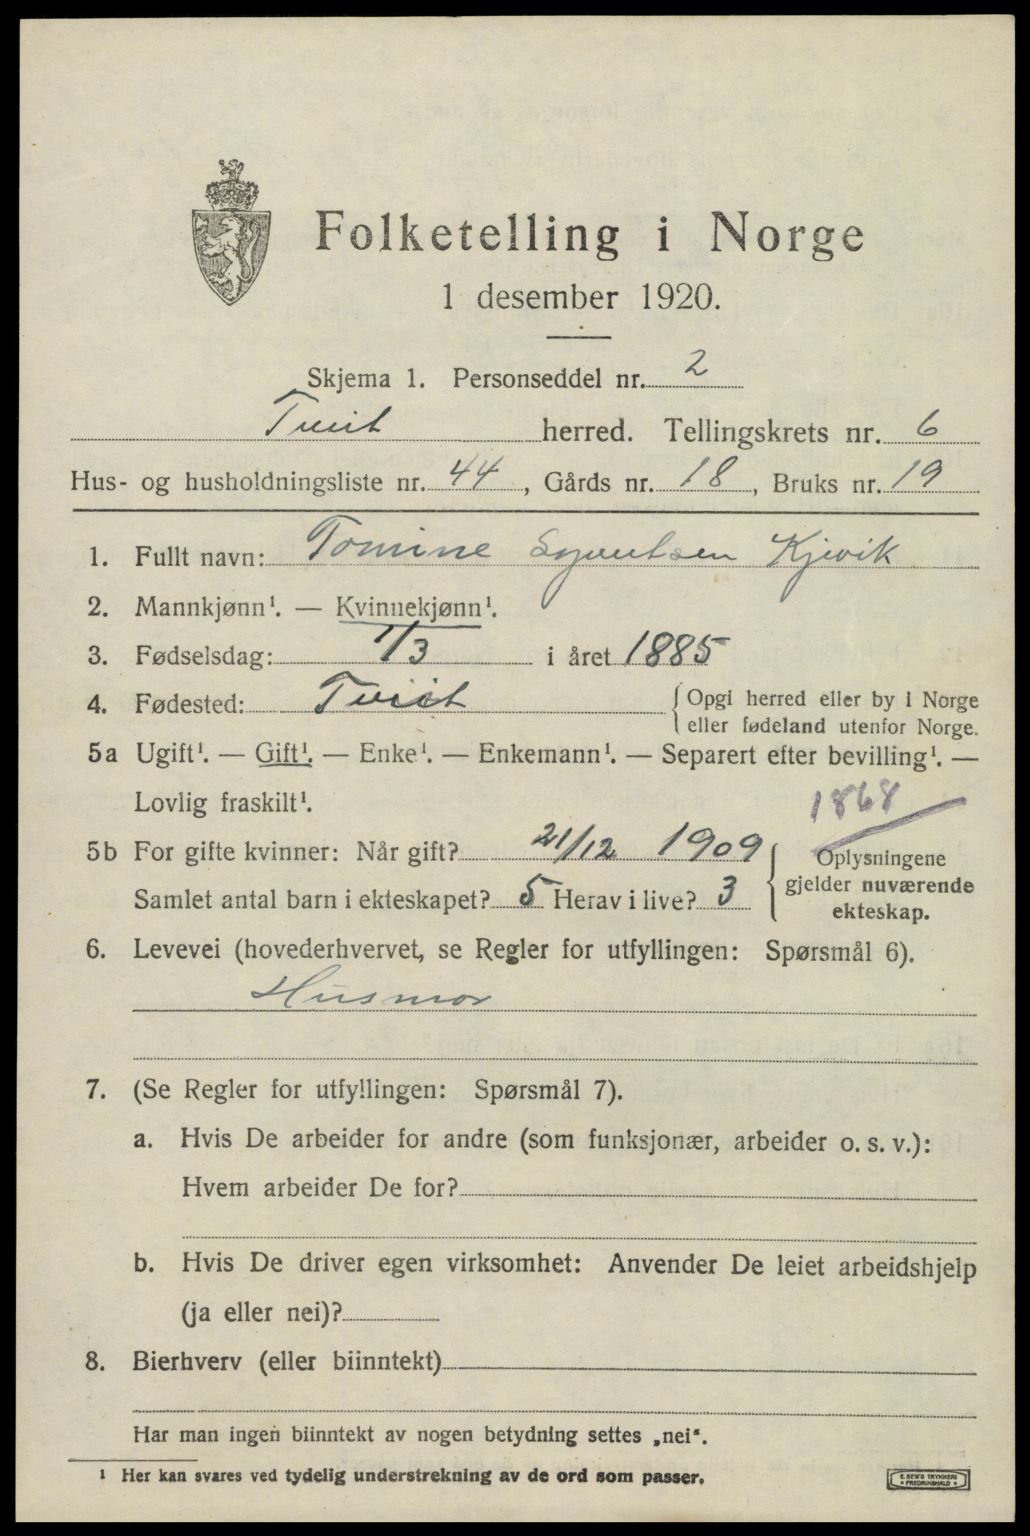 Folketelling i Norge
1 desember 1920.
Skjema 1. Personseddel nr. 2
Tveit herred. Tellingskrets nr. 6
Hus- og husholdningsliste nr. 44, Gårds nr. 18, Bruks nr. 19
1. Fullt navn: Tomine Syvertsen Kjevik
2. Mannkjønn¹. — Kvinnekjønn¹.
3. Fødselsdag: 1/3 i året 1885
4. Fødested: Tveit { Opgi herred eller by i Norge
eller fødeland utenfor Norge.
5a Ugift¹. — Gift¹. — Enke¹. — Enkemann¹. — Separert efter bevilling¹. —
Lovlig fraskilt¹.
1868
5b For gifte kvinner: Når gift? 21/12 1909
Samlet antal barn i ekteskapet? 5 Herav i live? 3
{ Oplysningene
gjelder nuværende
ekteskap.
6. Levevei (hovederhvervet, se Regler for utfyllingen: Spørsmål 6).
Husmor
7. (Se Regler for utfyllingen: Spørsmål 7).
a. Hvis De arbeider for andre (som funksjonær, arbeider o. s. v.):
Hvem arbeider De for?
b. Hvis De driver egen virksomhet: Anvender De leiet arbeidshjelp
(ja eller nei)?
8. Bierhverv (eller biinntekt)
Har man ingen biinntekt av nogen betydning settes „nei“.
¹ Her kan svares ved tydelig understrekning av de ord som passer.
E. SEM'S TRYKKERI
• FREDRIKSHALD •